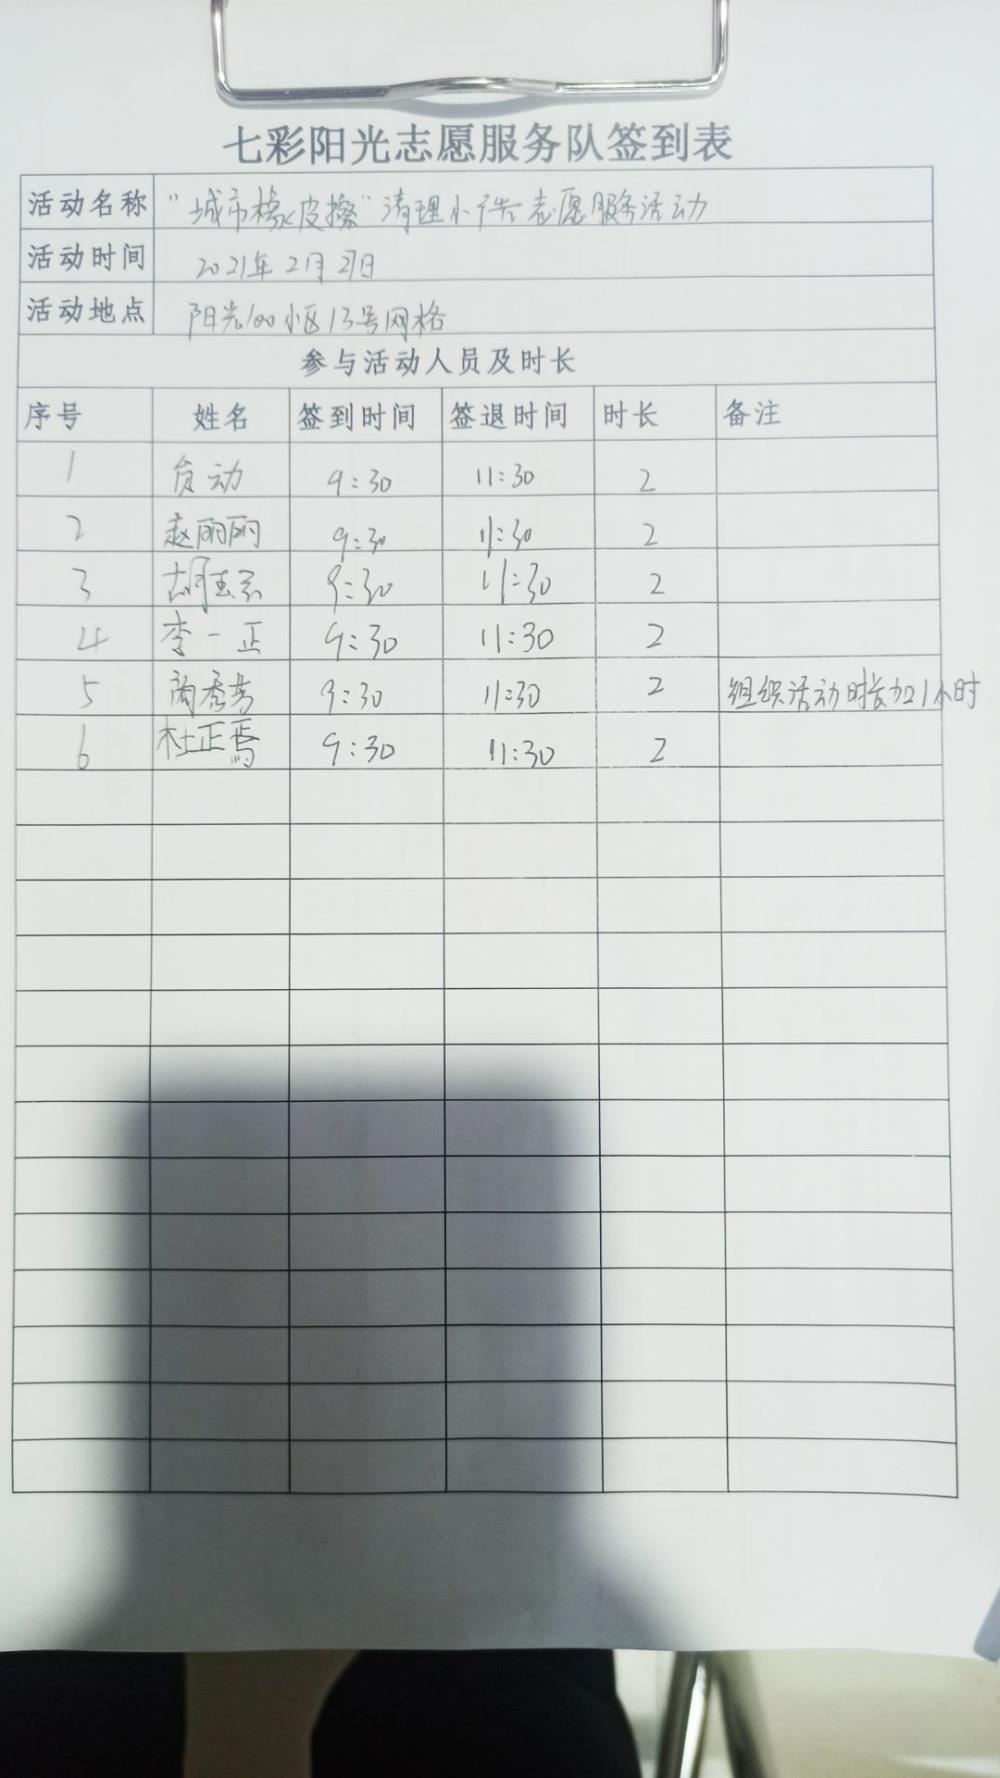 七彩阳光志愿服务队签到表
活动名称 “城市橡皮擦”清理小广告志愿服务活动
活动时间 2021年2月27日
活动地点 阳光100小区13号网格
参与活动人员及时长
序号 姓名 签到时间 签退时间 时长 备注
1 贠动 9:30 11:30 2
2 赵丽丽 9:30 11:30 2
3 胡 9:30 11:30 2
4 李一正 9:30 11:30 2
5 秀芳 9:30 11:30 2 组织活动时长加1小时
6 杜正焉 9:30 11:30 2